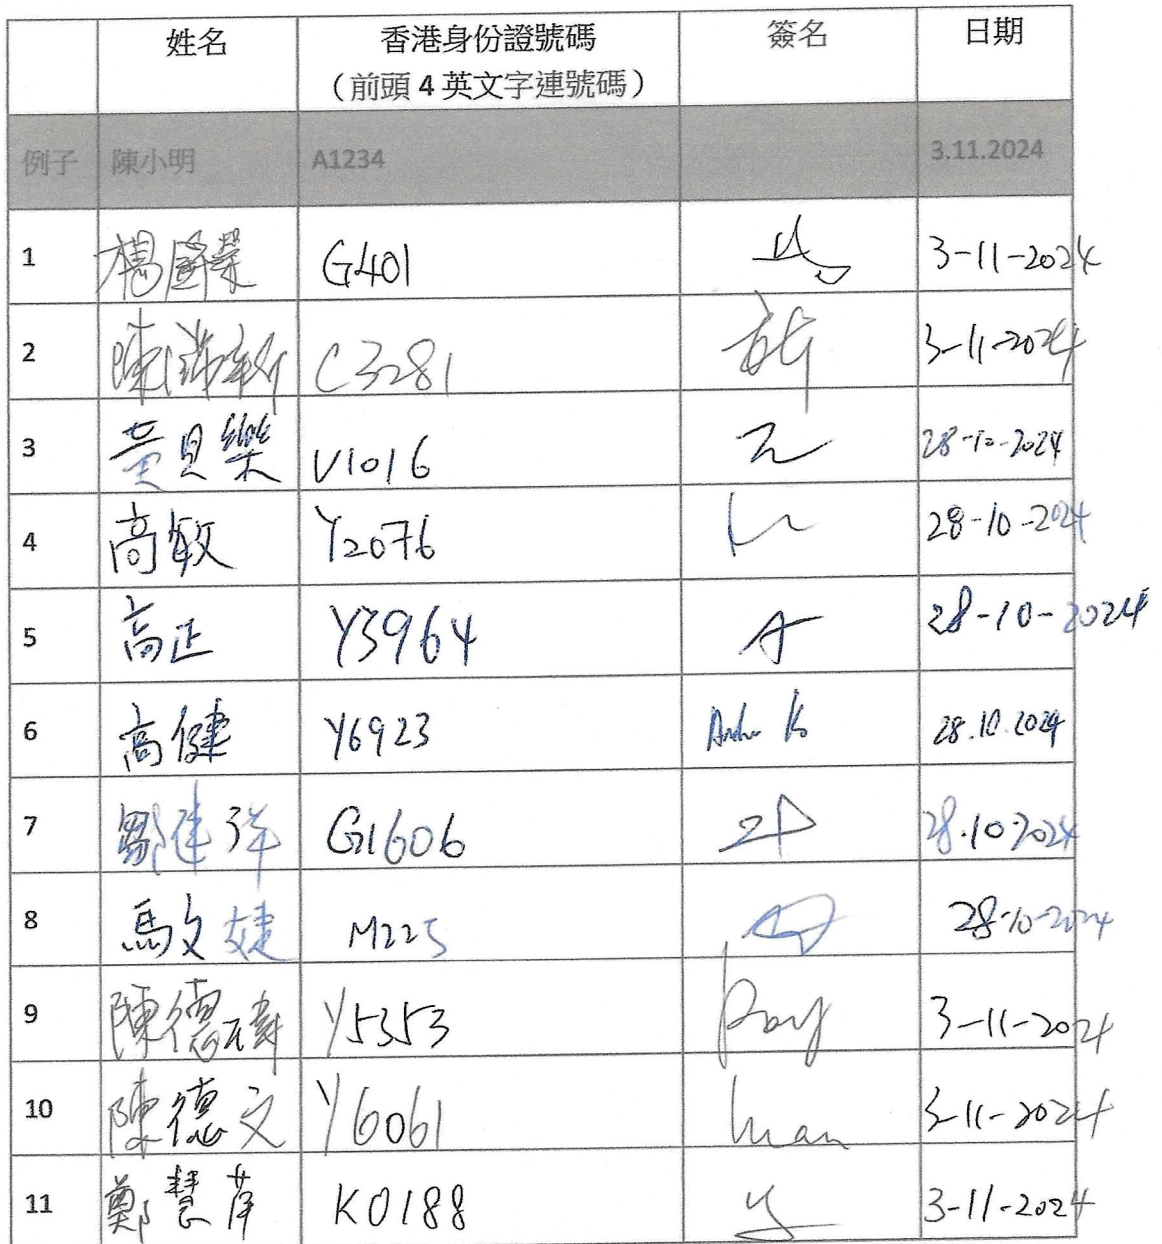 姓名 香港身份證號碼 簽名 日期
（前頭 4 英文字連號碼）
例子 陳小明 A1234 3.11.2024
1 楊國榮 G401 3-11-2024
2 陳 新 C3281 3-11-2024
3 黃貝樂 V1016 28-10-2024
4 高敏 Y2076 28-10-2024
5 高正 Y3964 28-10-2024
6 高健 Y6923 28.10.2024
7 鄒建洋 G1606 28.10 2024
8 馬文婕 M225 28-10-2024
9 陳德瑋 Y5353 Roy 3-11-2024
10 陳德文 Y6061 3-11-2024
11 鄭慧萍 K0188 3-11-2024